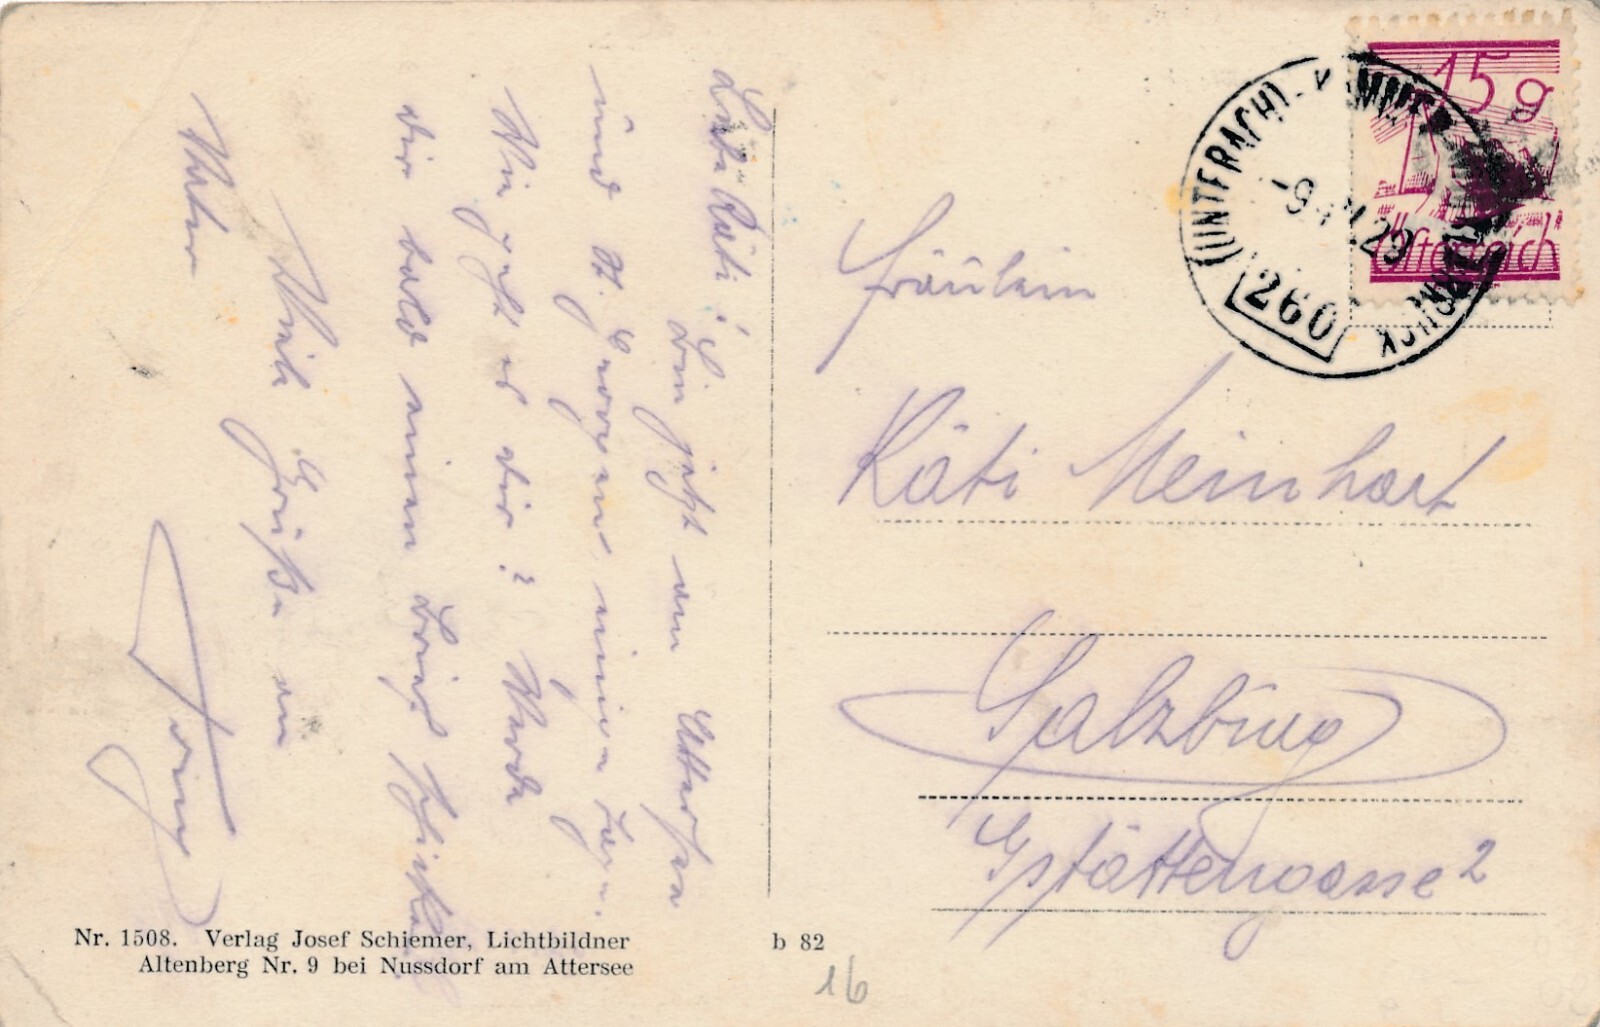 Liebe Käti!
Bin jetzt am Attersee
und St. Georgen einige Tage.
Wie geht es dir? Werde
dir bald einen Brief schicken
Viele Grüße an
Mutter
Fräulein
Käti Meinhart
Salzburg
Gstättengasse 2
15 g
Österreich
(UNTERACH)
260
Nr. 1508. Verlag Josef Schiemer, Lichtbildner
Altenberg Nr. 9 bei Nussdorf am Attersee
b 82
16